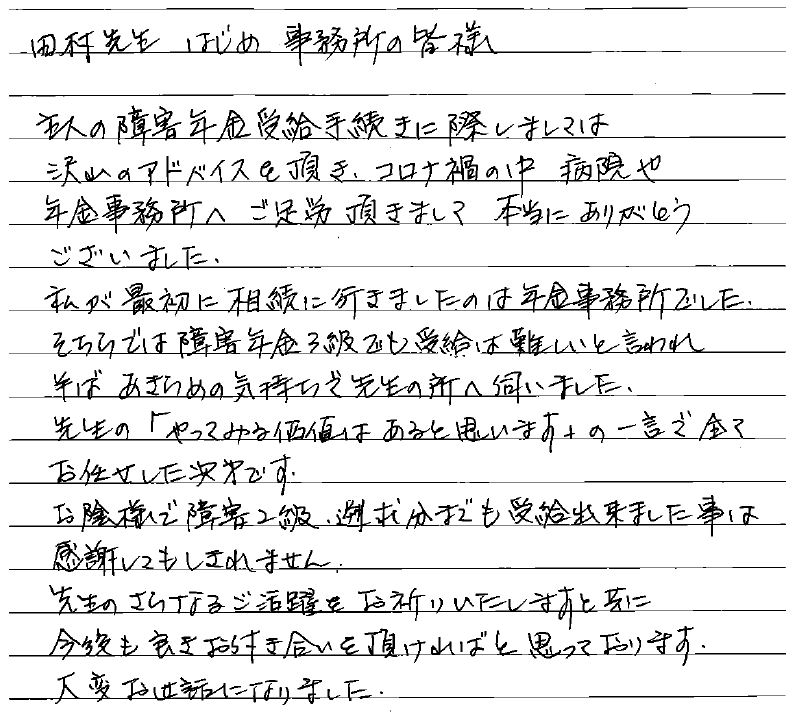 田村先生 はじめ 事務所の皆様へ
主人の障害年金受給手続きに際しましては
沢山のアドバイスを頂き、コロナ禍の中 病院や
年金事務所へ ご足労 頂きまして 本当に ありがとう
ございました。
私が最初に相続に行きましたのは年金事務所でした。
そちらでは障害年金3級でも受給は難しいと言われ
半ば あきらめの気持ちで先生の所へ伺いました。
先生の「やってみる価値は あると思います」の一言で全て
お任せした次第です。
お陰様で障害2級、遡求分までも受給出来ました事は
感謝してもしきれません。
先生のさらなるご活躍を お祈りいたしますと共に
今後も良きお付き合いを頂ければと思っております。
大変お世話になりました。